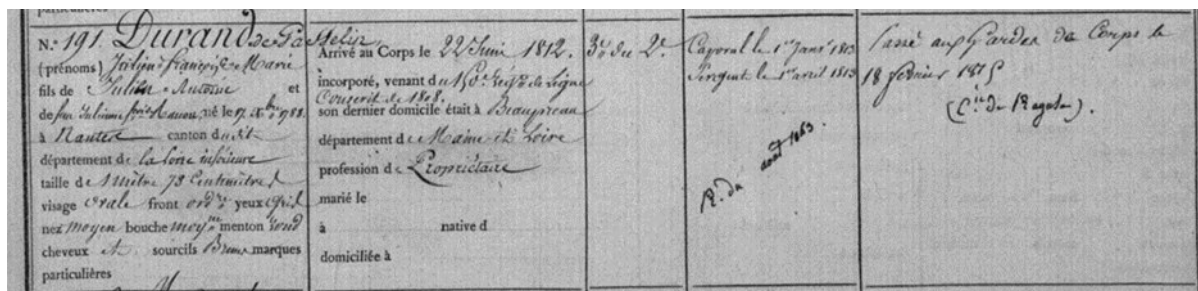 particulières
N.º 191. DURAND de Pastelin
(prénoms) Julien François Marie
fils de Julien Antoine et
de né le 17. Xbre 1788.
à Nantes canton du dit
département de la Loire inférieure
taille de 1 Mètre 73 Centimètres
visage Ovale front ordre yeux gris
nez moyen bouche moyne menton rond
cheveux et sourcils Bruns marques
particulières
Arrivé au Corps le 22 Juin 1812.
incorporé, venant du de Ligne
Conscrit de 1808.
son dernier domicile était à Beaupreau
département de Maine et Loire
profession de Propriétaire
marié le
à native d
domiciliée à
3e du 2e.
Caporal le 1er Janvr 1813
Sergent le 1er avril 1813
R. du août 1863.
Passé aux Gardes du Corps le
18 février 1815
(Cie. de Raguse).